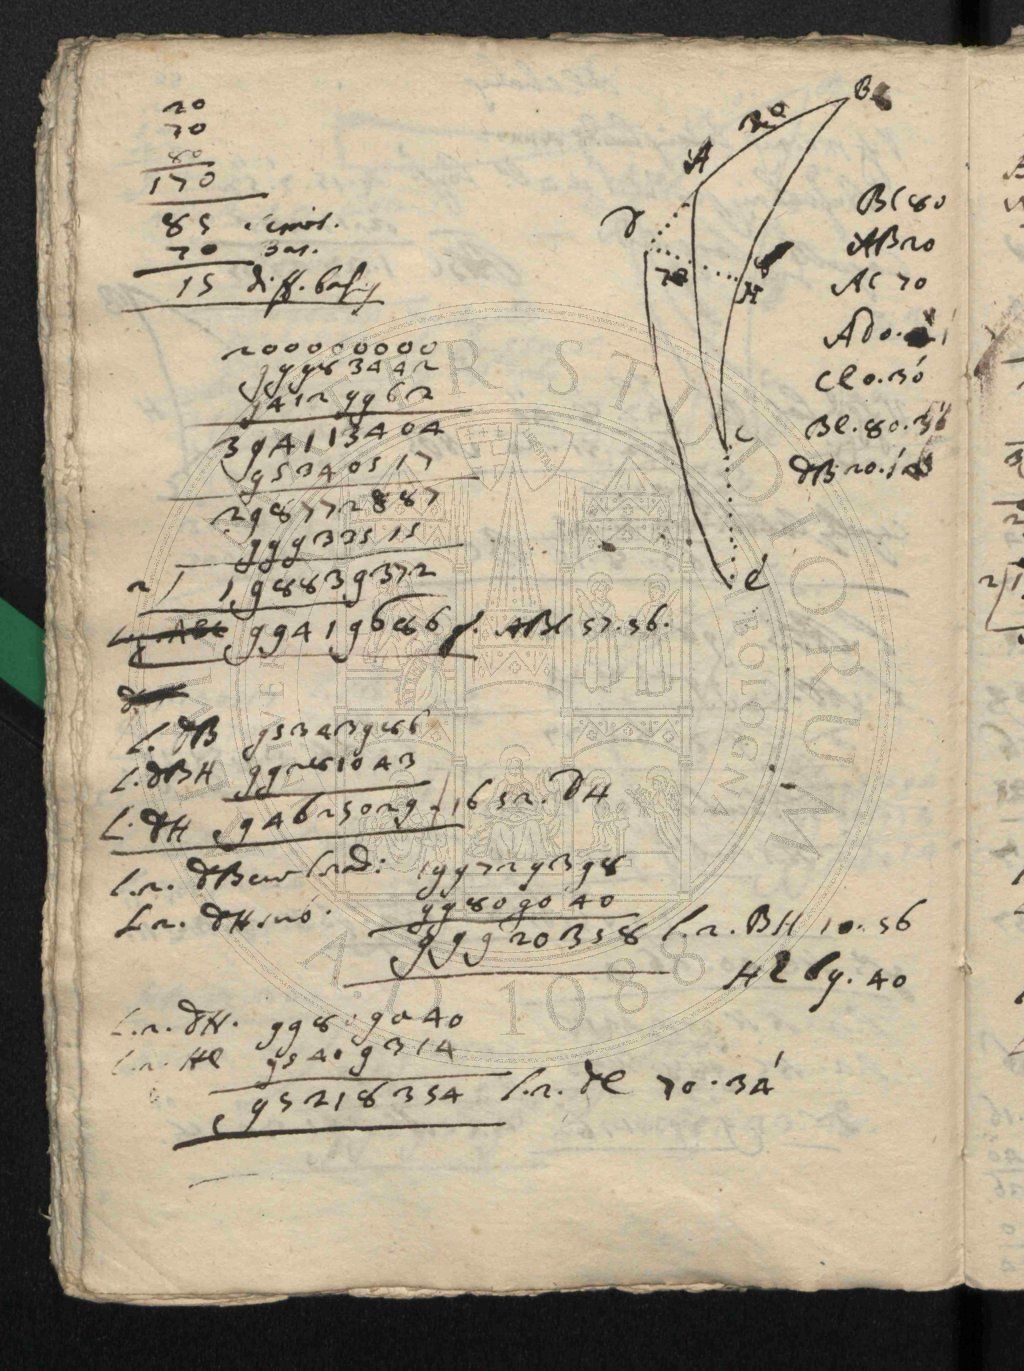 20
70
80
170
85 semis.
70 bas.
15 diff. basis
200000000
9983442
94129962
394113404
95340517
298772887
99933515
2) 198839372
99419686 s. ABC 57.56.
L. dB 95343966
L. dBH 99281043
L. dH 94625029 16 52. dH
L.2. dB cum l rad: 199729398
L.2. dH sub. 99809040
99920358 L.2. BH 10.56
He 69.40
L.2. dH. 99809040
L.2. He 95409314
95218354 L.2. de 70.34
B
20
A
d
70
H
C
e
BC 80
AB 20
AC 70
Ad 0.
Ce 0.30
Be. 80.30
dB 20.
ALMA MATER STUDIORUM
A.D. 1088
UNIVERSITÀ DI BOLOGNA